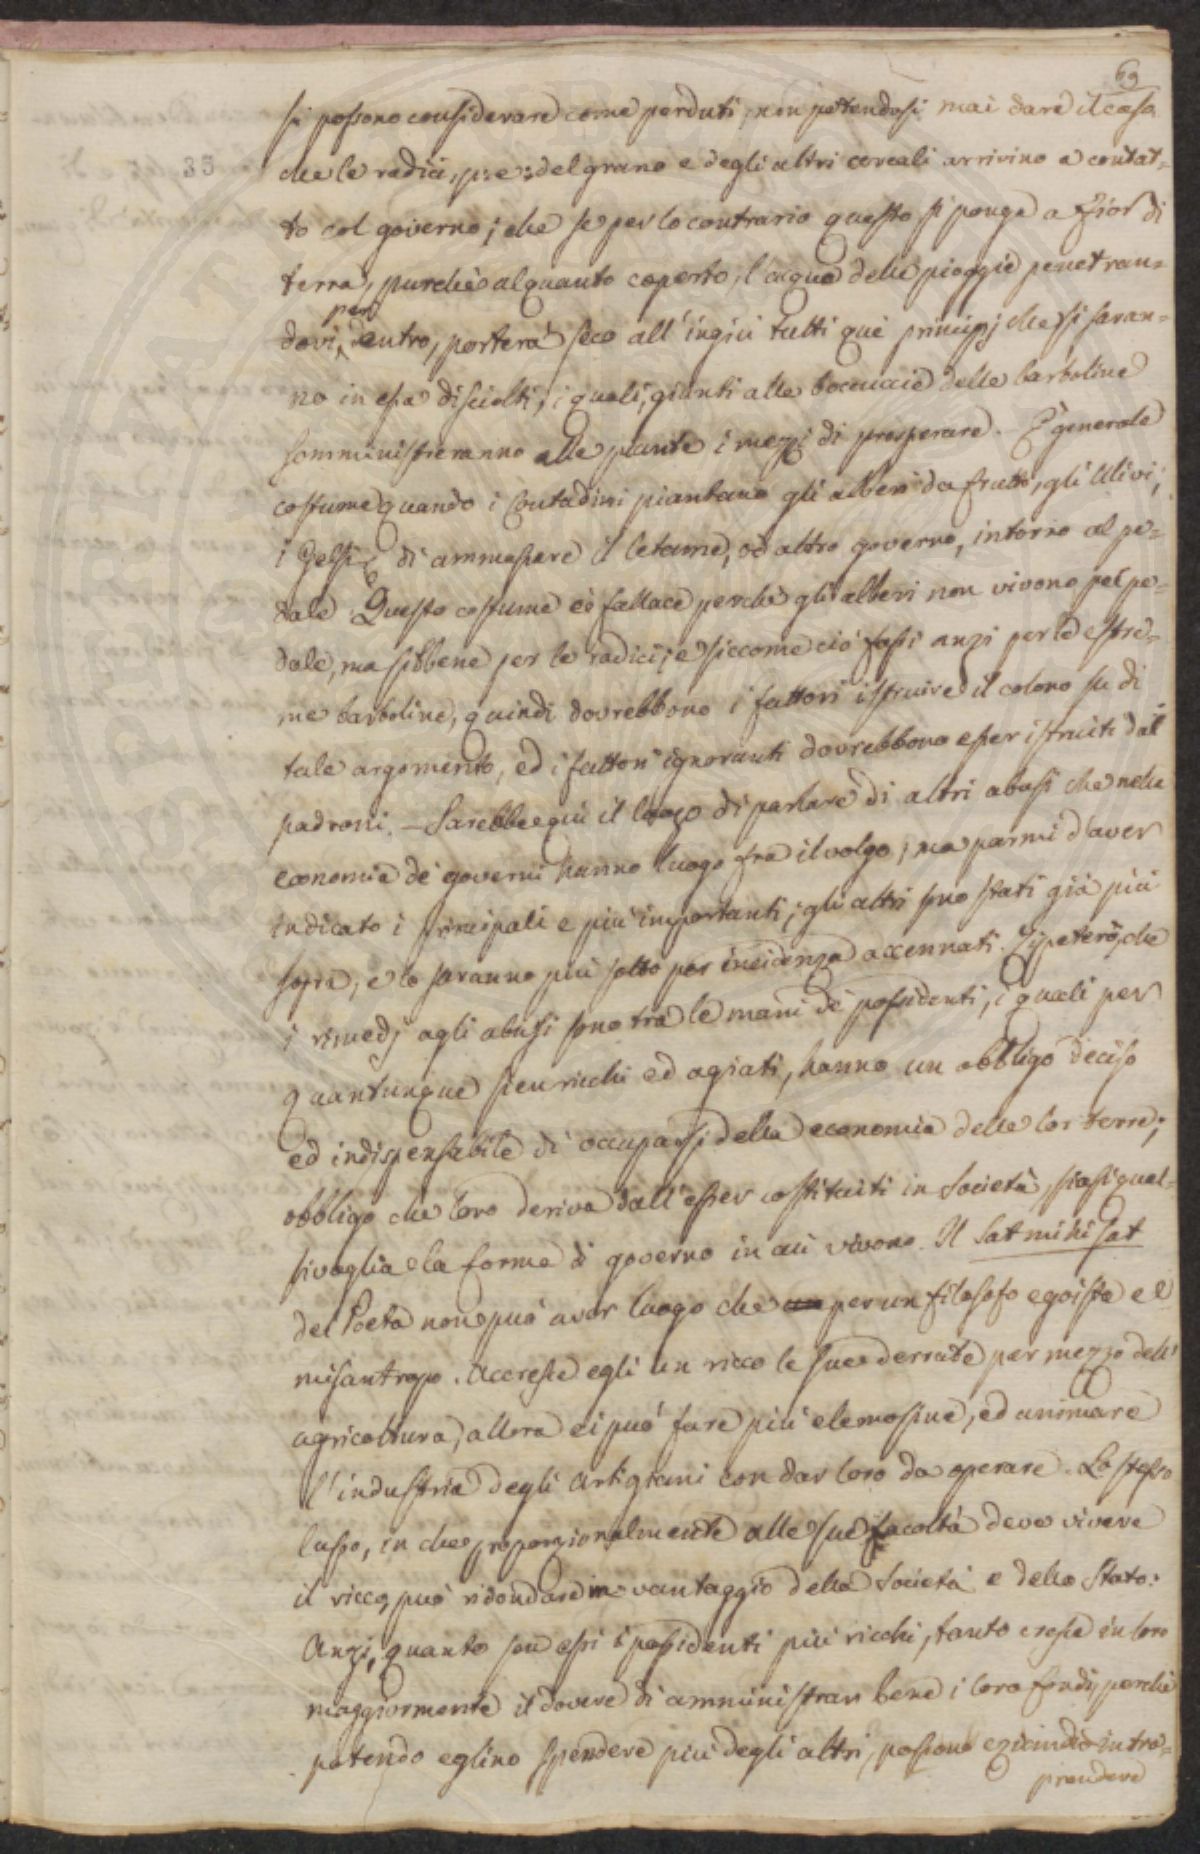 69
si possono considerare come perduti, non potendosi mai dare il caso
35
che le radici, p: e: del grano e degli altri cereali arrivino a contat=
to col governo; che se per lo contrario questo si ponga a fior di
terra, purchè alquanto coperto, l'acqua delle pioggie penetran=
per
dovi, entro, porterà seco all'ingiù tutti que' principj che si saran=
no in essa disciolti, i quali, giunti alle boccucie delle barboline
somministreranno alle piante i mezzi di prosperare. – È generale
costume quando i Contadini piantano gli alberi da frutto, gli Ulivi,
i Gelsi & di ammassare il letame, od altro governo, intorno al pe=
dale. Questo costume è fallace perchè gli alberi non vivono pel pe=
dale, ma sibbene per le radici; e siccome ciò fassi anzi per le estre=
me barboline, quindi dovrebbono i fattori istruire il colono su di
tale argomento, ed i fattori ignoranti dovrebbono esser istruiti dai
padroni. – Sarebbe qui il luogo di parlare di altri abusi che nella
economia de' governi hanno luogo fra il volgo; ma parmi d'aver
indicato i principali e più importanti; gli altri sono stati già più
sopra, e lo saranno più sotto per incidenza accennati. Ripeterò, che
i rimedj agli abusi sono tra le mani de' possidenti, i quali per
quantunque sien ricchi ed agiati, hanno un obbligo deciso
ed indispensabile di occuparsi della economia delle lor terre;
obbligo che loro deriva dall'esser costituiti in Società, siasi qual=
sivoglia la forma di governo in cui vivono. Il Sat mihi sat
del Poeta non può aver luogo che per un filosofo egoista e
misantropo. Accresce egli un ricco le sue derrate per mezzo dell'
agricoltura, allora ei può fare più elemosine, ed animare
l'industria degli Artigiani con dar loro da operare. Lo stesso
lusso, in che proporzionalmente alle sue facoltà deve vivere
il ricco, può ridondare in vantaggio della Società e dello Stato:
Anzi, quanto son essi i possidenti più ricchi, tanto cresce in loro
maggiormente il dovere di amministrar bene i loro fondi, perchè
potendo eglino spendere più degli altri, possono eziandio intra=
prendere